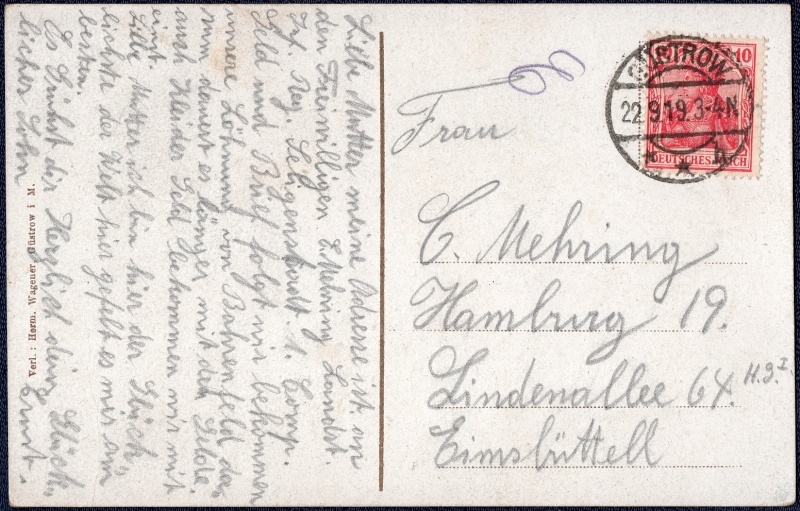 Liebe Mutter meine Adresse ist an
den Freiwilligen E. Mehring Landst.
Inf. Reg. 1. Comp.
Geld und Brief folgt wir bekommen
unsere Löhnung von Bahrenfeld da
rum dauert es länger mit den Gelde.
auch Kleider Geld bekommen wir mit
einst.
Liebe Mutter ich bin hier der Glück„
lichste der Welt hier gefält es mir am
besten.
Es Grüßst dir Herzlich dein Glück„
licher Sohn Ernst.
Verl.: Herm. Wagener, Güstrow i M.
GÜSTROW
22.9.19.3-4N.
10
DEUTSCHES REICH
Frau
C. Mehring
Hamburg 19.
Lindenallee 64. H. 3. I.
Eimsbüttell